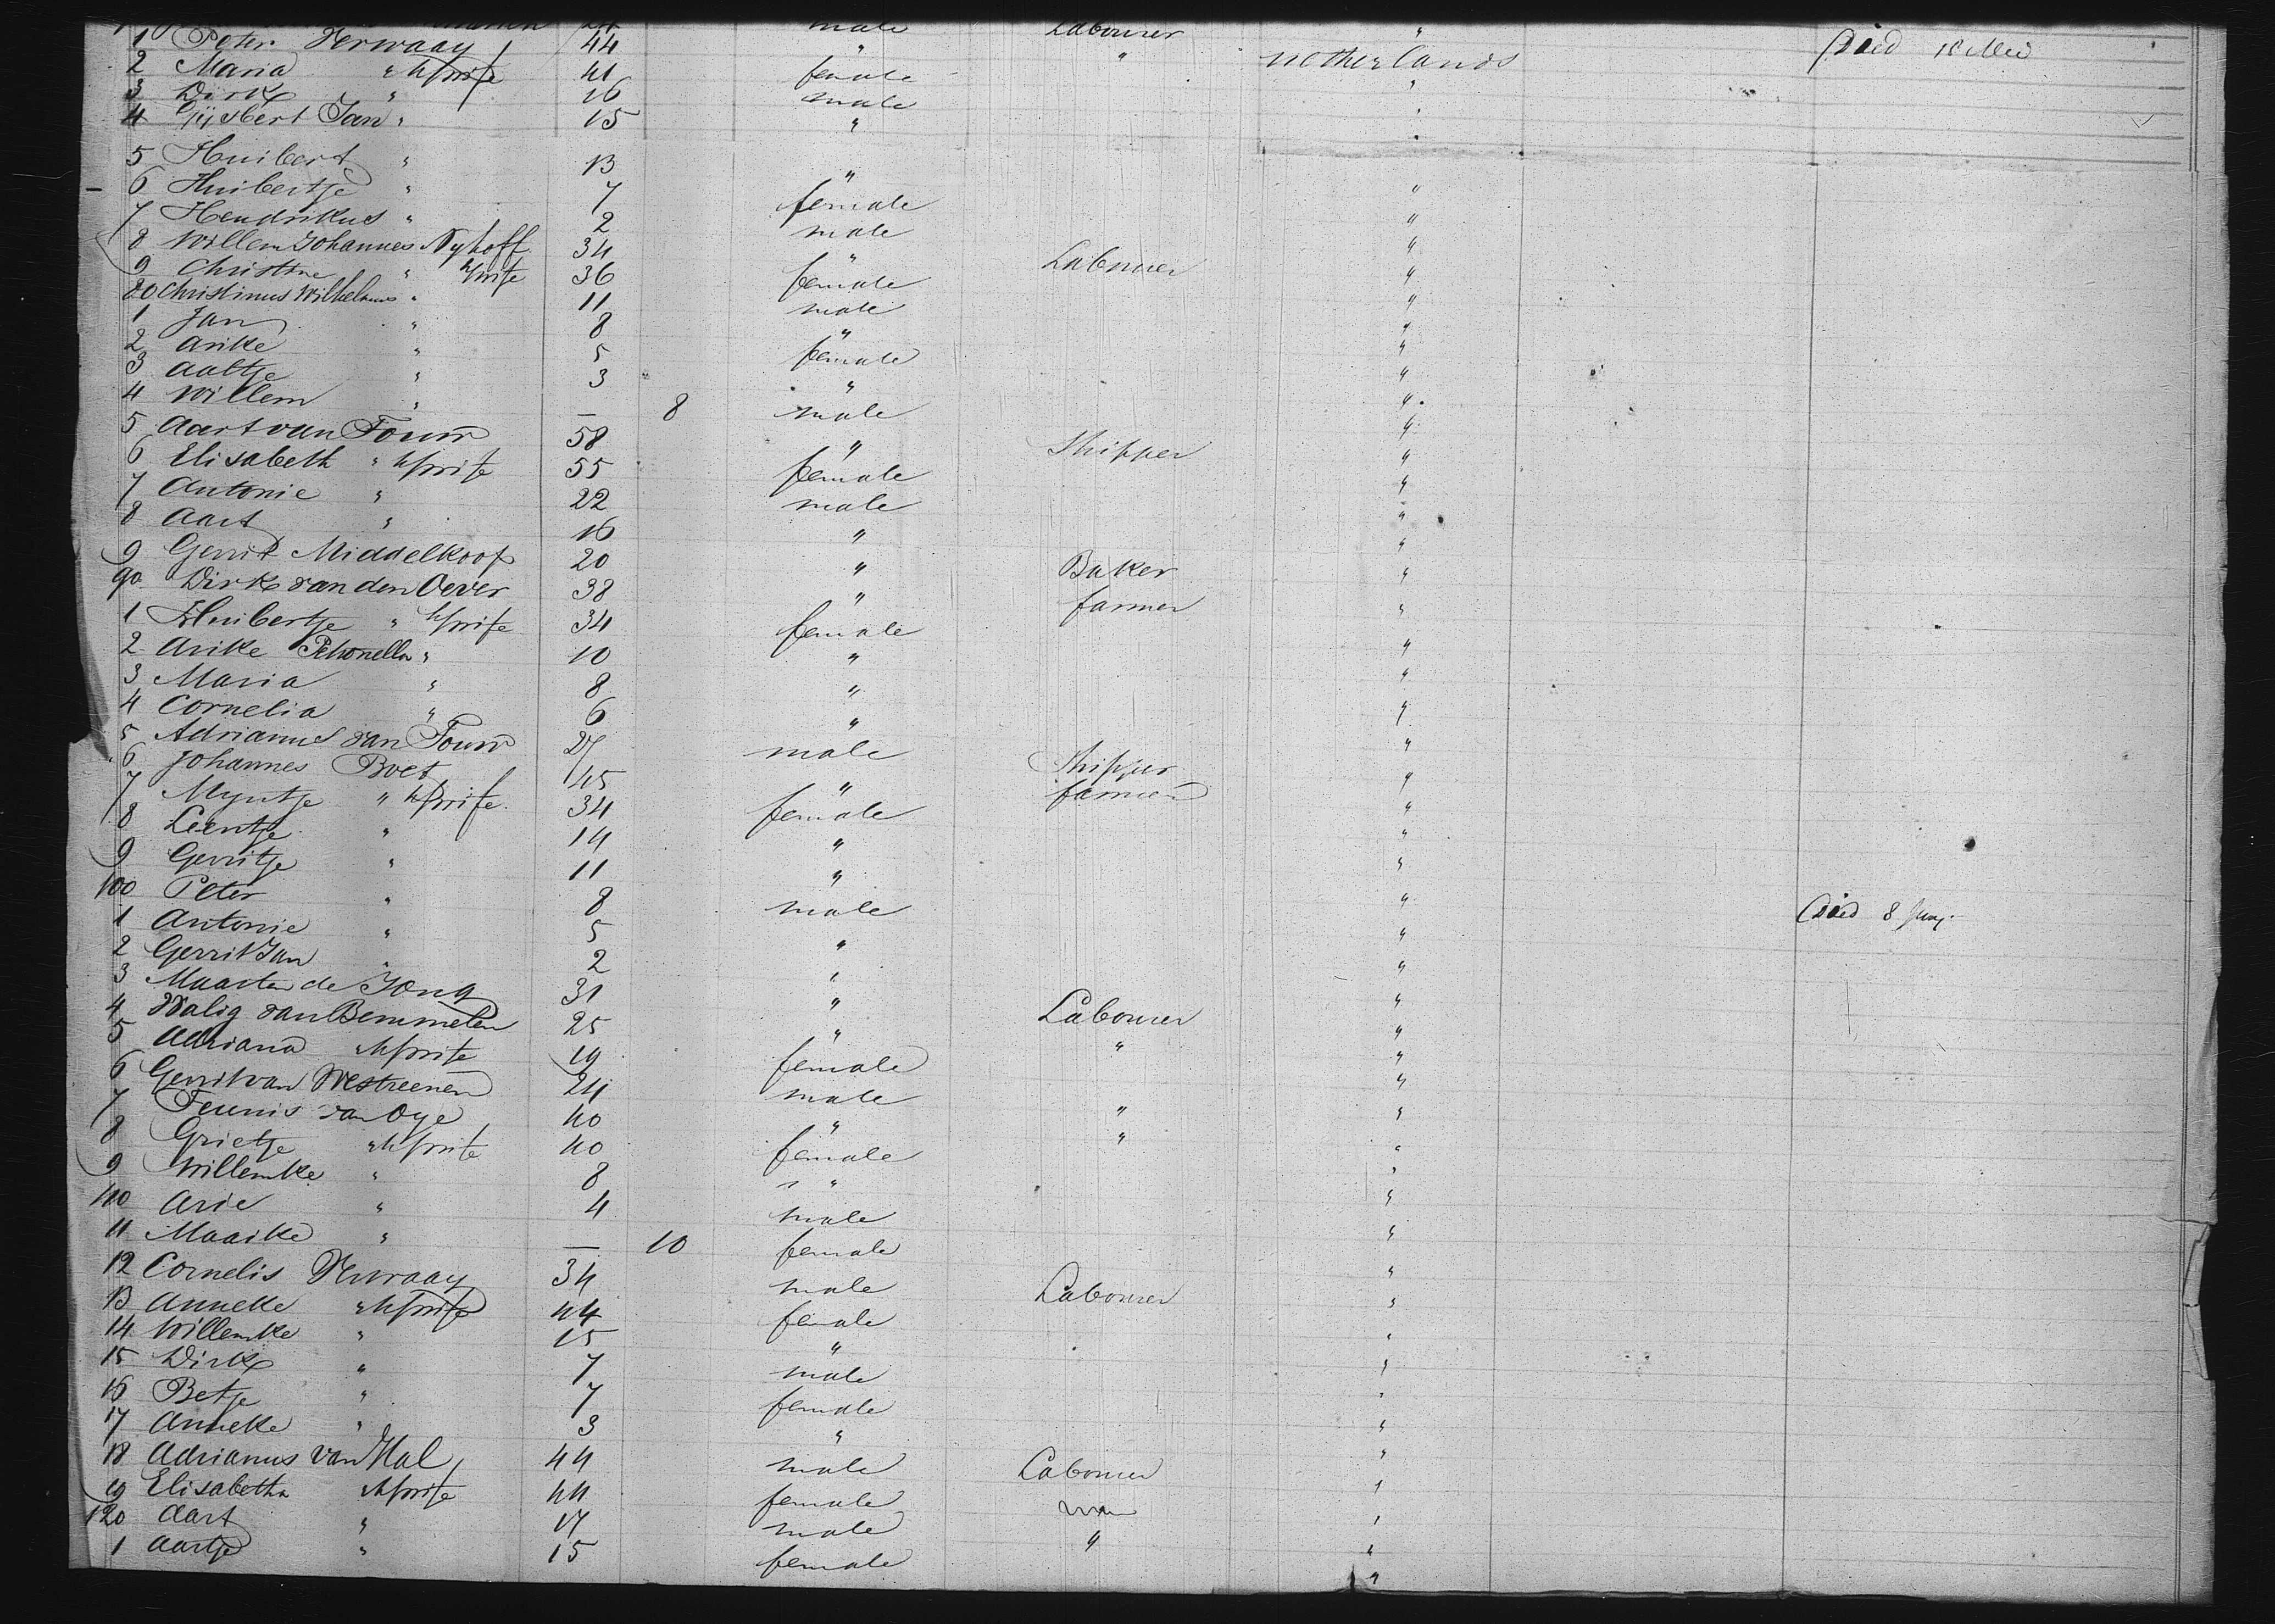 male Labourer "
1 Peter Verwaay 44 " " Netherlands Died 18 Mei
2 Maria " h/wife 41 female "
3 Dirk " 16 male "
4 Gijsbert Jan " 15 " "
5 Huibert " 13 "
6 Huibertje " 7 female "
7 Hendrikus " 2 male "
8 Willem Johannes Nyhoff 34 " Labourer "
9 Christine " h/wife 36 female "
80 Christinus Wilhelmus " 11 male "
1 Jan " 8 " "
2 Arike " 5 female "
3 Aaltje " 3 " "
4 Willem " — 8 male "
5 Aart van Tourn 58 " Shipper "
6 Elisabeth " h/wife 55 female "
7 Antonie " 22 male "
8 Aart " 16 " "
9 Gerrit Middelkoop 20 " Baker "
90 Dirk van den Oever 38 " farmer "
1 Huibertje " h/wife 34 female "
2 Arike Petronella " 10 " "
3 Maria " 8 " "
4 Cornelia " 6 " "
5 Adrianus van Tourn 27 male Shipper "
6 Johannes Boet 45 " farmer "
7 Myntje " h/wife 34 female "
8 Leentje " 14 " "
9 Gerritje " 11 " "
100 Peter " 8 male " Died 8 Junj
1 Antonie " 5 " "
2 Gerrit Jan " 2 " "
3 Maarten de Jong 31 " Labourer "
4 Walig van Bemmelen 25 " " "
5 Adriana " h/wife 19 female "
6 Gerrit van Westreenen 24 male " "
7 Teunis van Oye 40 " " "
8 Grietje " h/wife 40 female "
9 Willemke " 8 " "
110 Arie " 4 male "
11 Maaike " — 10 female "
12 Cornelis Verwaay 34 male Labourer "
13 Anneke " h/wife 44 female "
14 Willemke " 15 " "
15 Dirk " 7 male "
16 Betje " 7 female "
17 Anneke " 3 " "
18 Adrianus van Hal 44 male Labourer "
19 Elisabetha " h/wife 44 female "
120 Aart " 17 male " "
1 Aartje " 15 female "